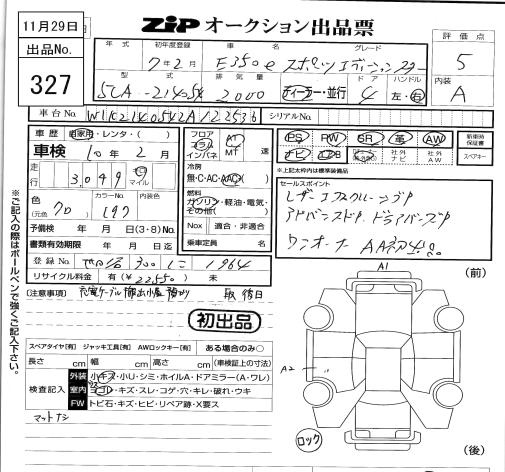 11月29日
出品No.
327
ZIP オークション出品票
評価点
5
内装
A
年式 初年度登録 車名 グレード
7年2月 E350e スポーツエディションスター
型式 排気量 ドア ハンドル
5LA-21405X 2000 ディーラー・並行 4 左・右
車台No. シリアルNo.
車歴 自家用・レンタ・( )
車検 10年2月
走行 3,049 キロ マイル
色 (元色) クロ カラーNo. 197 内装色
予備検 年 月 日(3・8)
書類有効期限 年 月 日迄
登録No. 300 に 1964
リサイクル料金 有(¥22550) 未
フロア フラット インパネ AT MT 速
冷房 無・C・AC・AAC
燃料 ガソリン・軽油・電気・その他( )
Nox 適合・非適合
乗車定員 名
PS PW SR 革 AW
ナビ TV B 社外ナビ 社外AW
新車時保証書
スペアキー
※上記太枠内は標準装備品
セールスポイント
レザーエクスクルーシブP
アドバンスドP ドライバーズP
ワンオーナー
(注意事項)
初出品
※ご記入の際はボールペンで強くご記入下さい。
スペアタイヤ[有] ジャッキ工具[有] AWロックキー[有] ある場合のみ○
長さ cm 幅 cm 高さ cm (車検証上の寸法)
検査記入
外装 小キズ・小U・シミ・ホイルA・ドアミラー(A・ワレ)
室内 ヨゴレ・キズ・スレ・コゲ・穴・キレ・破れ・ウキ
FW トビ石・キズ・ヒビ・リペア跡・X要ス
マットナシ
A1
(前)
A2
ロック
(後)